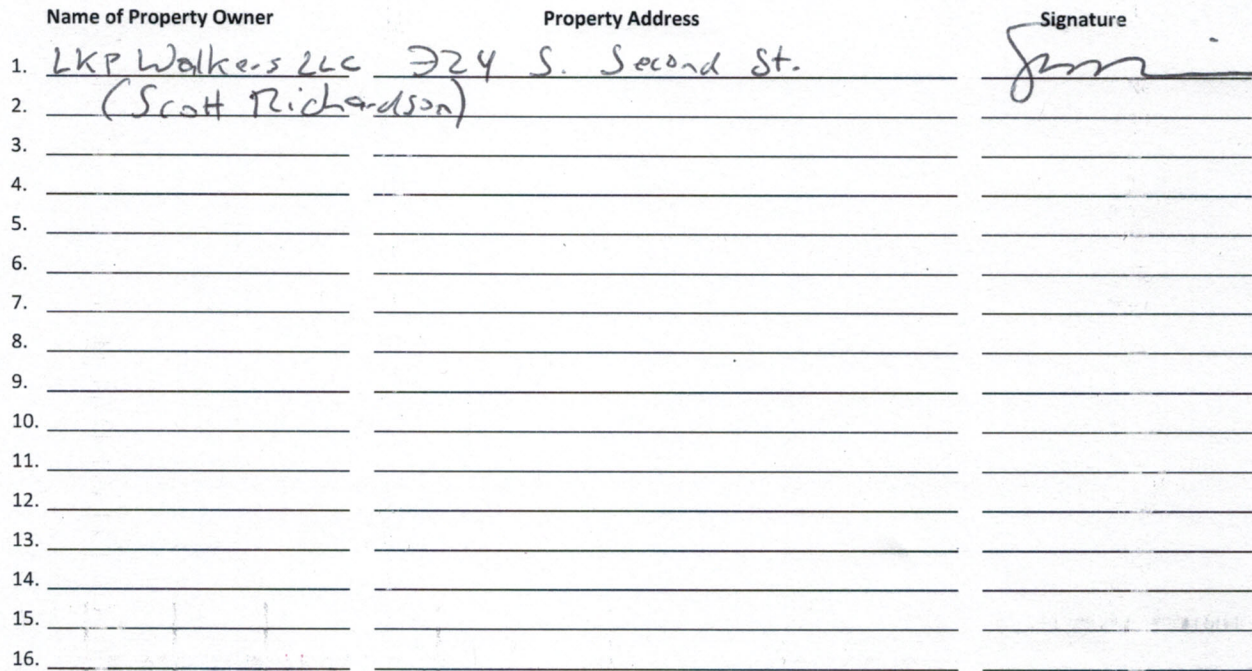 Name of Property Owner Property Address Signature
1. LKP Walkers LLC 324 S. Second St.
2. (Scott Richardson)
3.
4.
5.
6.
7.
8.
9.
10.
11.
12.
13.
14.
15.
16.